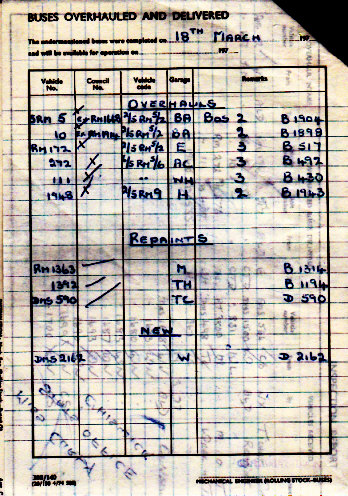 BUSES OVERHAULED AND DELIVERED
The undermentioned buses were completed on 18TH MARCH 197
and will be available for operation on 197
Vehicle No. Council No. Vehicle code Garage Remarks
OVERHAULS
SRM 5 ex RM1648 2/5RM5/2 BA Bos 2 B 1904
10 2/5RM5/2 BA 2 B 1898
RM 172 2/5RM5/2 E 3 B 517
292 AC 3 B 492
111 " WH 3 B 430
1948 2/5RM9 H 2 B 1943
REPAINTS
RM 1363 M B 1396
1392 TH B 1194
DMS 590 TC D 590
NEW
DMS 2162 W D 2162
CHISWICK
OFFICE
MECHANICAL ENGINEER (ROLLING STOCK-BUSES)